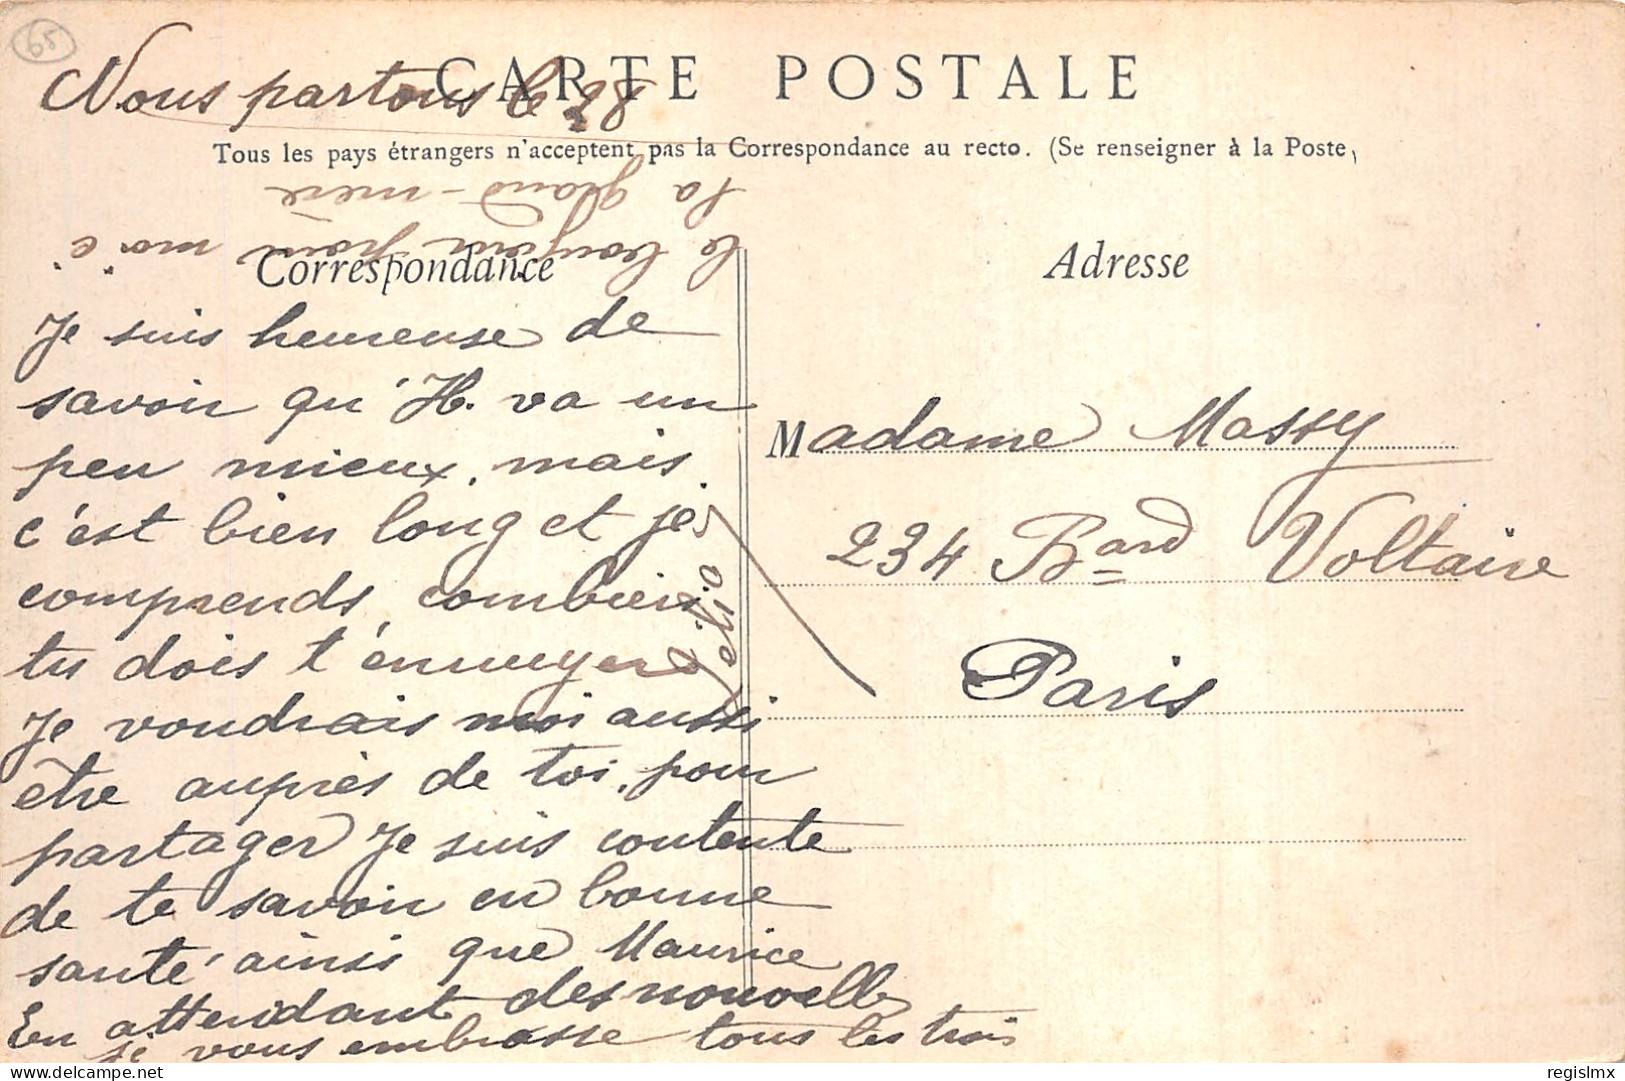 65
Nous partons le 28
CARTE POSTALE
Tous les pays étrangers n'acceptent pas la Correspondance au recto. (Se renseigner à la Poste)
ta grand-mère
le bonjour pour moi à
Correspondance
Adresse
Je suis heureuse de
savoir qu'H. va un
peu mieux, mais
c'est bien long et je
comprends combien
tu dois t'ennuyer
Je voudrais moi aussi
être auprès de toi, pour
partager Je suis contente
de te savoir en bonne
santé ainsi que Maurice
En attendant des nouvelles
je vous embrasse tous les trois
Madame Massy
234 Bard Voltaire
Paris
delcampe.net
regislmx